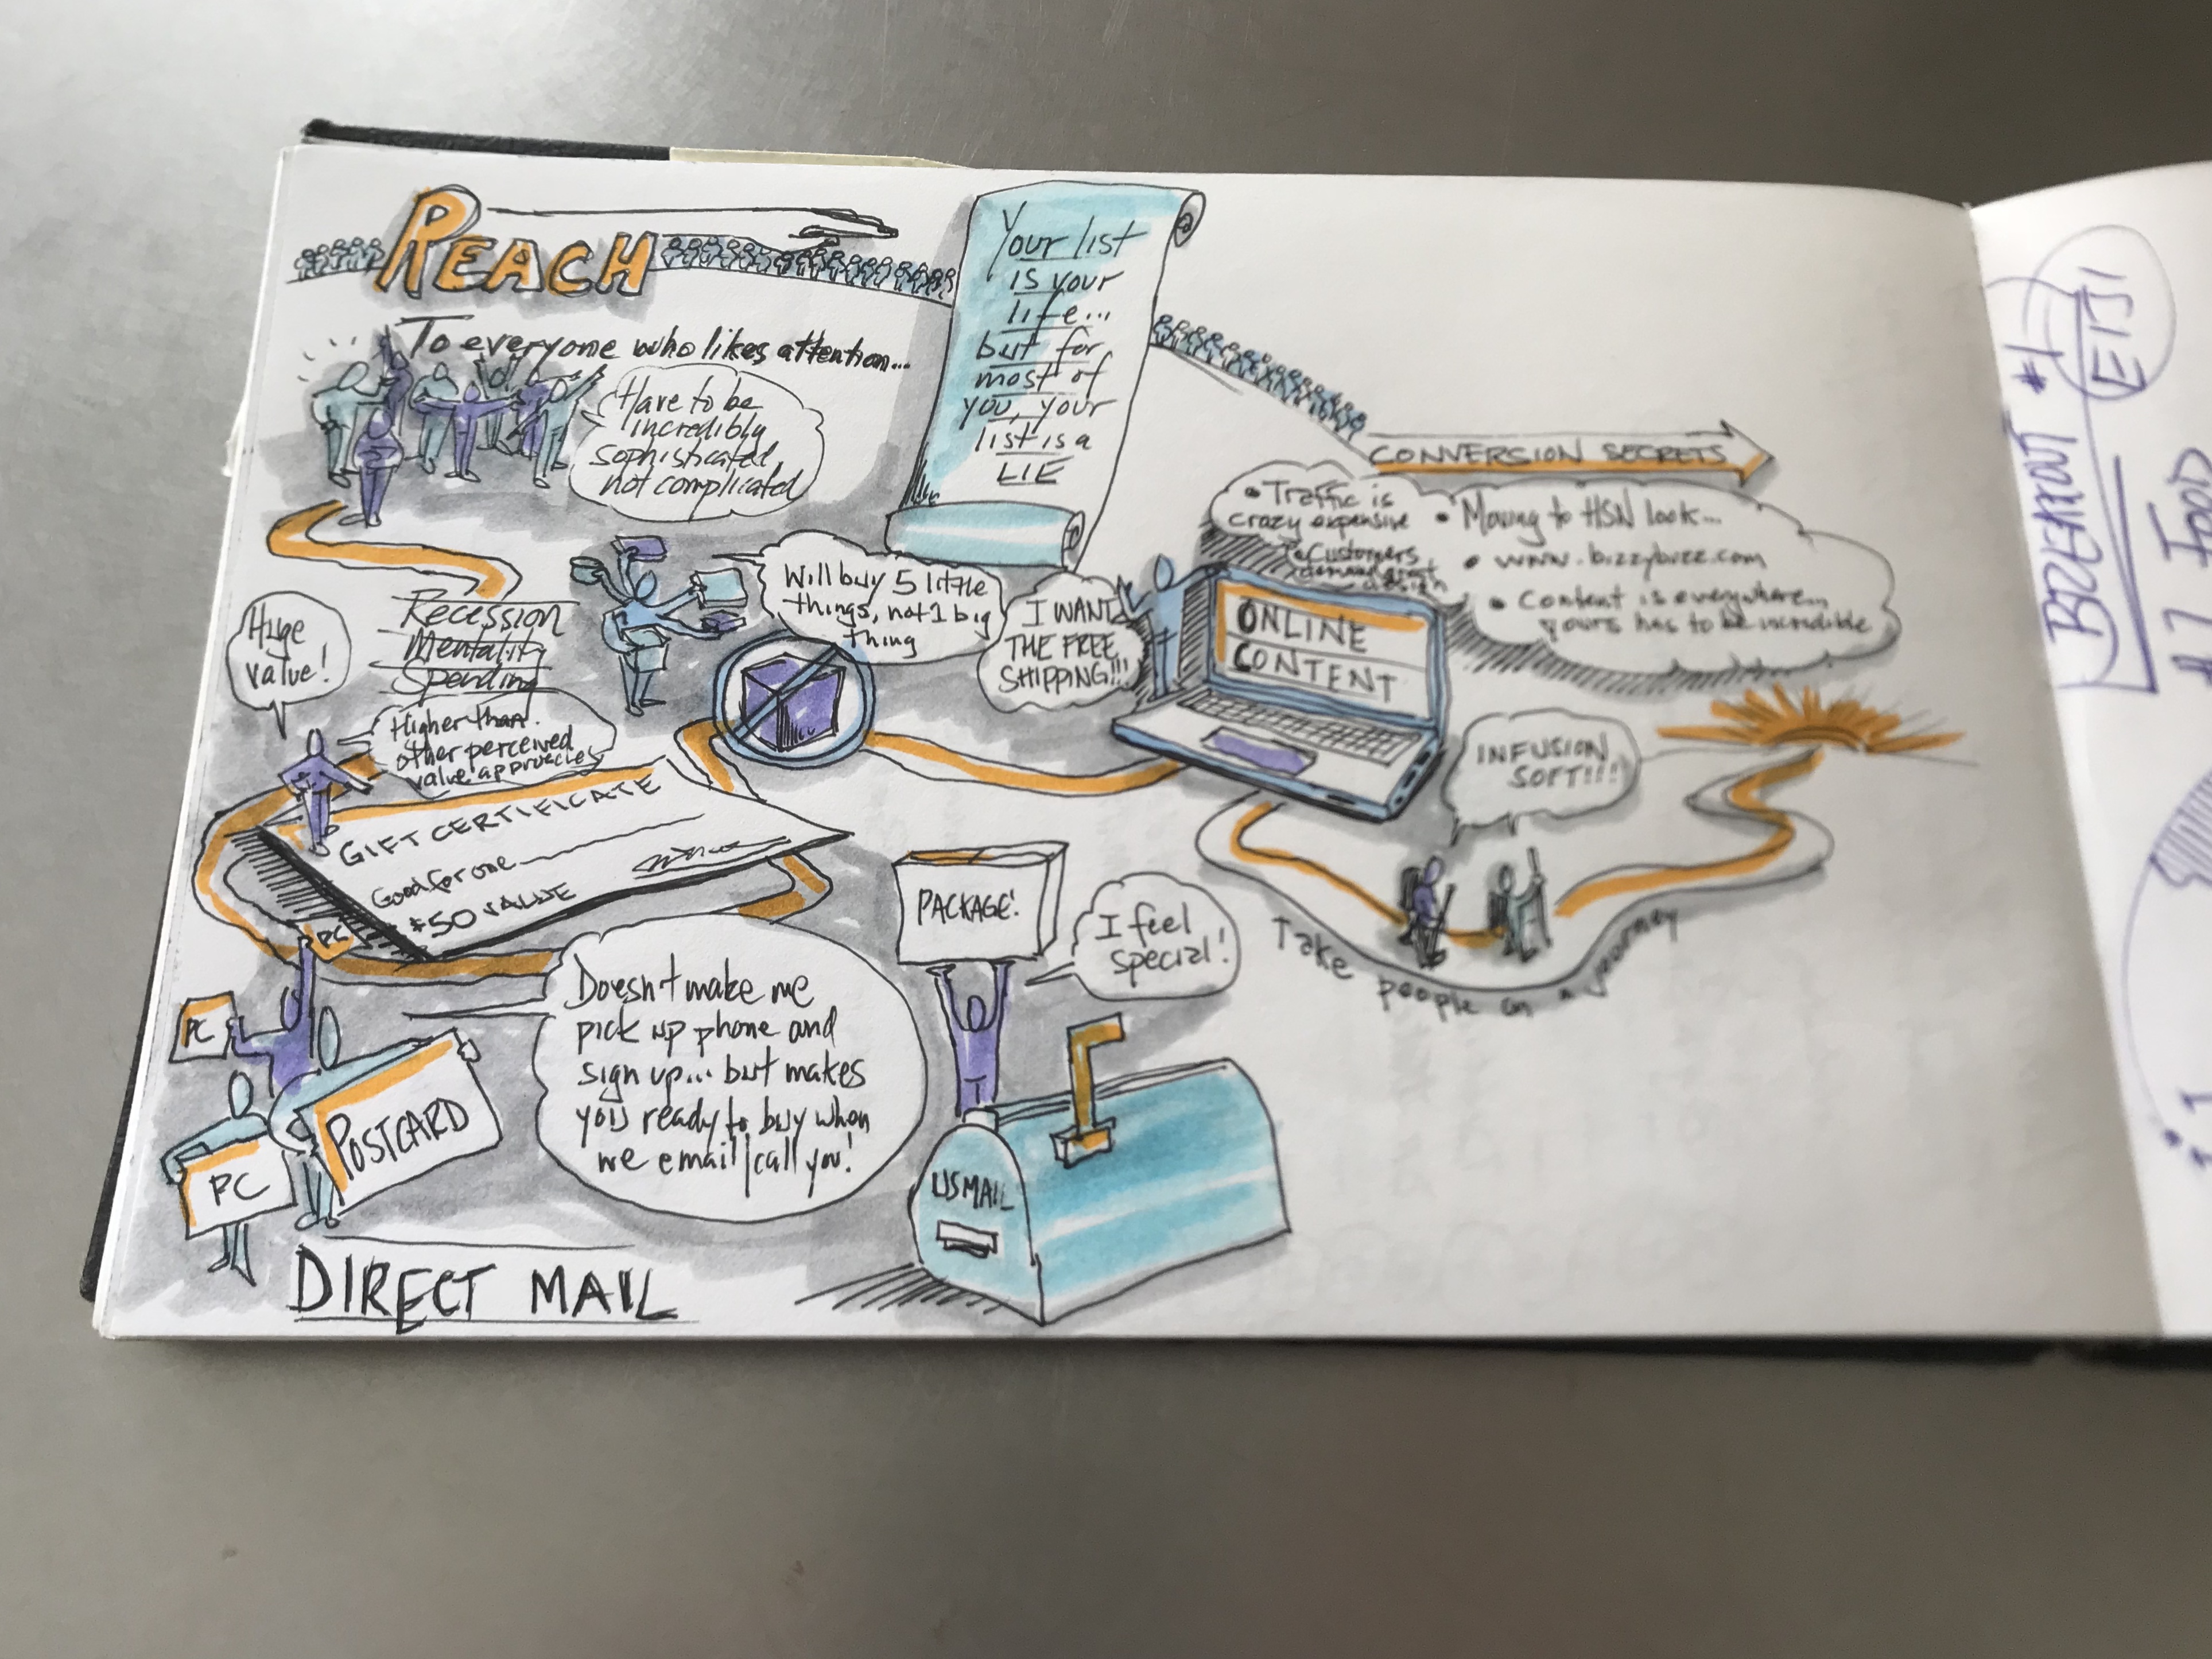 REACH
To everyone who likes attention...
Have to be
incredibly
sophisticated,
not complicated
Your list
is your
life...
but for
most of
you, your
list is a
LIE
CONVERSION SECRETS
• Traffic is
crazy expensive
• Customers
demand great
design
• Moving to HSN look...
• www.bizzybizz.com
• Content is everywhere...
yours has to be incredible
Recession
Mentality
Spending
Huge
value!
Higher than
other perceived
value approaches
Will buy 5 little
things, not 1 big
thing
I WANT
THE FREE
SHIPPING!!!
ONLINE
CONTENT
INFUSION
SOFT!!!
Take people on a journey
GIFT CERTIFICATE
Good for one
$50 VALUE
PC
PC
PC
POSTCARD
Doesn't make me
pick up phone and
sign up... but makes
you ready to buy when
we email/call you!
PACKAGE!
I feel
special!
US MAIL
DIRECT MAIL
BREAKOUT #1